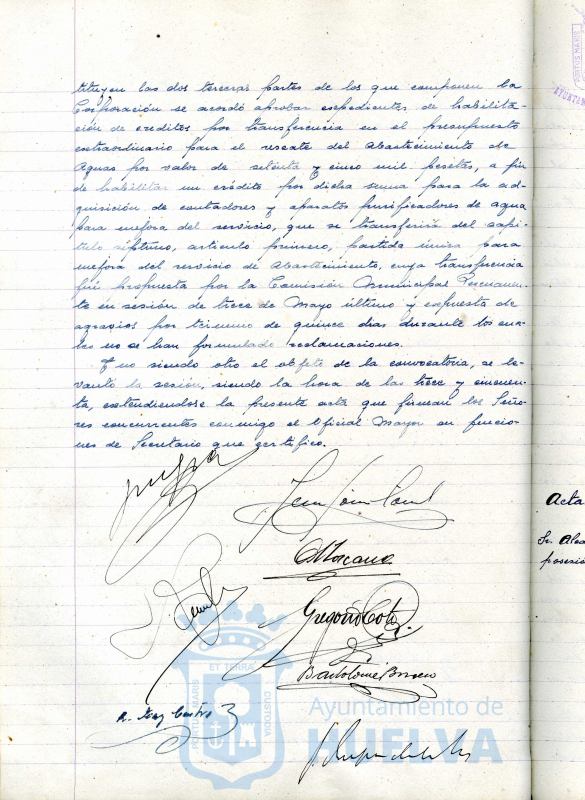 tituyen las dos terceras partes de los que componen la
Corporación se acordó aprobar expediente de habilita-
ción de creditos por transferencia en el presupuesto
extraordinario para el rescate del Abastecimiento de
Aguas por valor de setenta y cinco mil pesetas, a fin
de habilitar un crédito por dicha suma para la ad-
quisición de contadores y aparatos purificadores de agua
para mejora del servicio, que se transferirá del capi-
tulo séptimo, articulo primero, partida única para
mejora del servicio de Abastecimiento, cuya transferencia
fué propuesta por la Comisión Municipal Permanen-
te en sesión de trece de Mayo último y expuesta de
agravios por término de quince dias durante los cua-
les no se han formulado reclamaciones.
Y no siendo otro el objeto de la convocatoria, se le-
vantó la sesión, siendo la hora de las trece y cincuen-
ta, extendiendose la presente acta que firman los Seño-
res concurrentes conmigo el Oficial Mayor en funcio-
nes de Secretario que certifico.
Acta
Sr. Alca
posesió
Gregorio
Bartolomé
ET TERRÆ
PORTUS MARIS
CUSTODIA
Ayuntamiento de
HUELVA
PORTUS MARIS
AYUNTAM